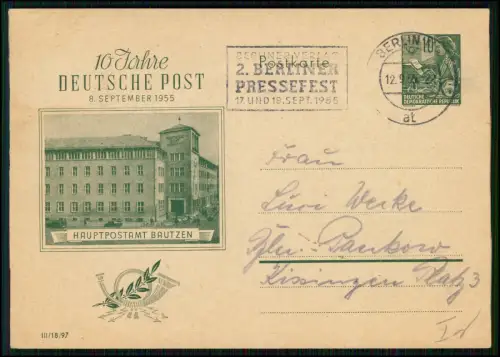 10 Jahre
DEUTSCHE POST
8. SEPTEMBER 1955
HAUPTPOSTAMT BAUTZEN
III/18/97
BERLINER VERLAG
Postkarte
2. BERLINER
PRESSEFEST
17. UND 18. SEPT. 1955
BERLIN
12.9.55
at
10
DEUTSCHE
DEMOKRATISCHE REPUBLIK
Frau
Werke
Bln. Pankow
Kissingen Platz 3